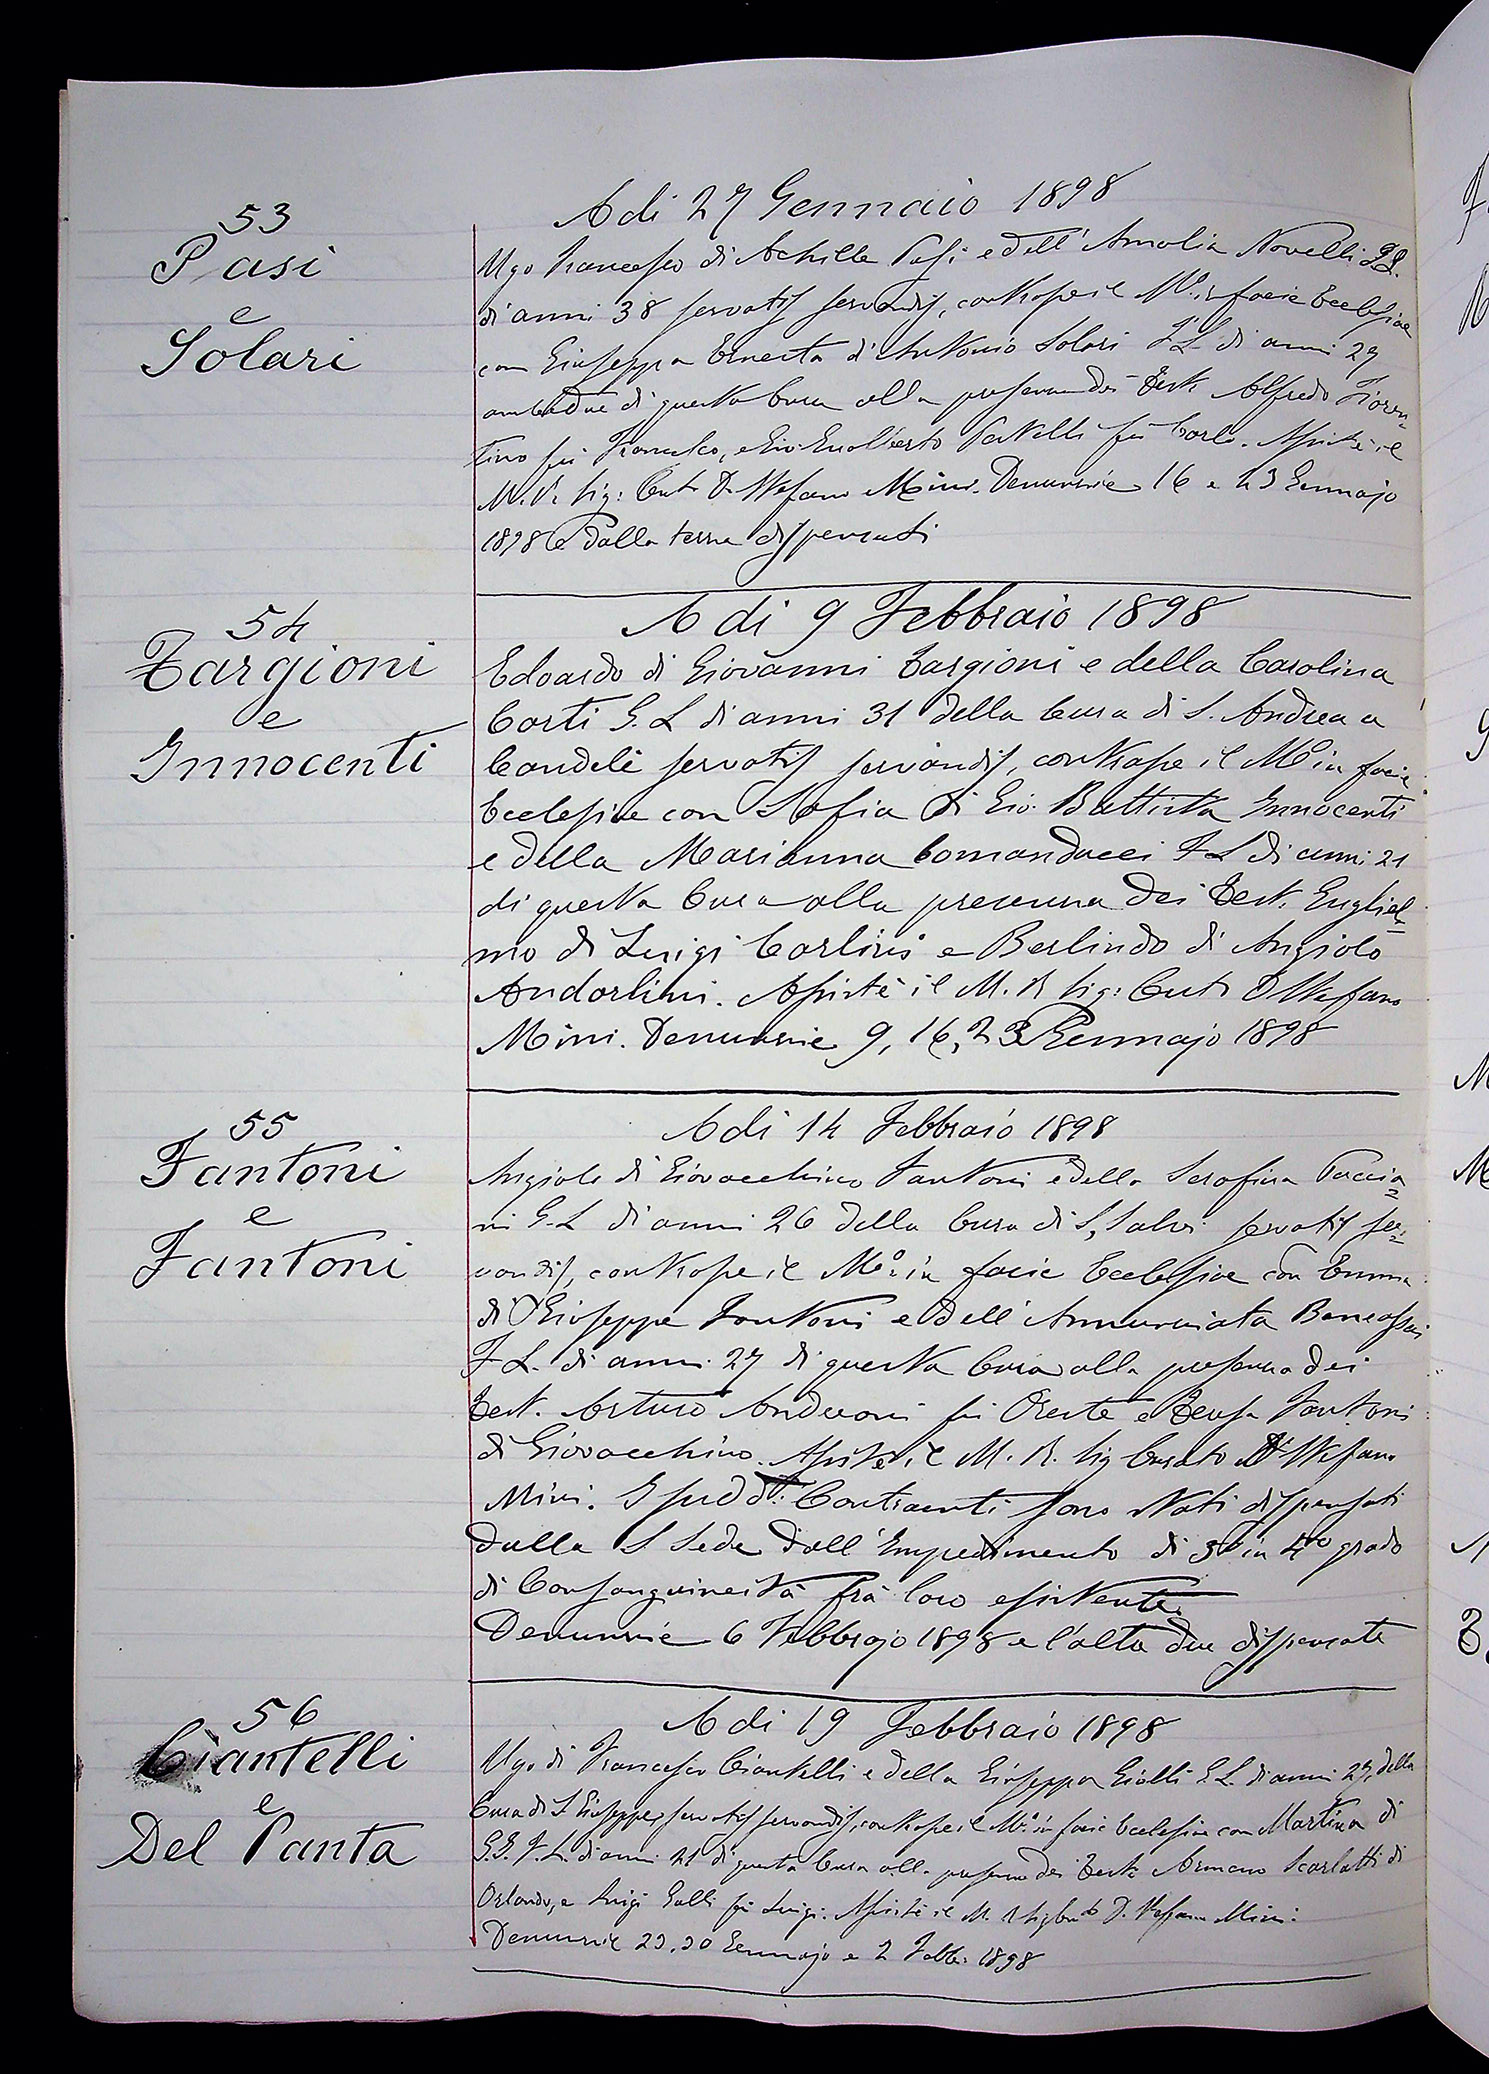 53
Pasi
e
Solari
A di 27 Gennaio 1898
Ugo Francesco di Achille Pasi e dell' Amalia Novelli G.L.
di anni 38 servatis servandis, contrasse il Mo. in facie Ecclesiae
con Giuseppa Ernesta di Antonio Solari F L di anni 27
ambedue di questa Cura alla presenza dei Testi Alfredo Fioren=
tino fu Francesco, e Gio: Gualberto fu Carlo. Assistè il
M. R. Sig: Curto D. Stefano Mini. Denunzie 16 e 23 Gennajo
1898 e dalla terza dispensati
54
Targioni
e
Innocenti
A di 9 Febbraio 1898
Edoardo di Giovanni Targioni e della Carolina
Corti G. L di anni 31 della Cura di S. Andrea a
Candeli servatis servandis, contrasse il Mo in facie
Ecclesiae con Sofia di Gio: Battista Innocenti
e della Marianna Comanducci F L di anni 21
di questa Cura alla presenza dei Test. Gugliel=
mo di Luigi Carlini e Berlindo di Angiolo
Andorlini. Assistè il M. R Sig: Curto D Stefano
Mini. Denunzie 9, 16, 23 Gennajo 1898
55
Fantoni
e
Fantoni
A di 14 Febbraio 1898
Angiolo di Giovacchino Fantoni e della Serafina Paccia=
ni G. L di anni 26 della Cura di S. Salvi servatis ser=
vandis, contrasse il Mo: in facie Ecclesiae con Emma
di Giuseppe Fantoni e dell' Annunziata
F L. di anni 27 di questa Cura alla presenza dei
Test. Arturo Andreoni fu Oreste e Fantoni
di Giovacchino. Assistè il M. R. Sig Curato D. Stefano
Mini. I sudd.ti Contraenti sono stati dispensati
dalla S Sede dall' Impedimento di 3o in 4to grado
di Consanguineità frà loro esistente.
Denunzie 6 Febbrajo 1898 e l'altre due dispensate
56
Ciantelli
e
Del Panta
A di 19 Febbraio 1898
Ugo di Francesco Ciantelli e della Giuseppa Giolli G L. di anni 27, della
Cura di S Giuseppe, servatis servandis, contrasse il Mo. in facie Ecclesiae con Martina di
G.G. F. L. di anni 21 di questa Cura alla presenza dei Testi Armano Scarlatti di
Orlando, e Luigi Galli fu Luigi. Assistè il M. R Sig Cur.to D. Stefano Mini.
Denunzie 23. 30 Gennajo e 2 Febb: 1898